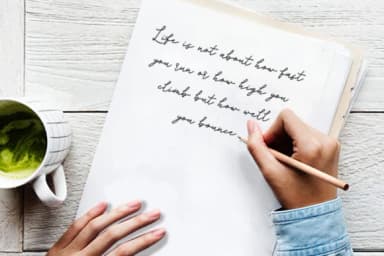 Life is not about how fast
you run or how high you
climb but how well
you bounce